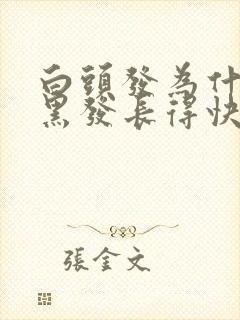 白頭發為什
黑發長得快
張金文